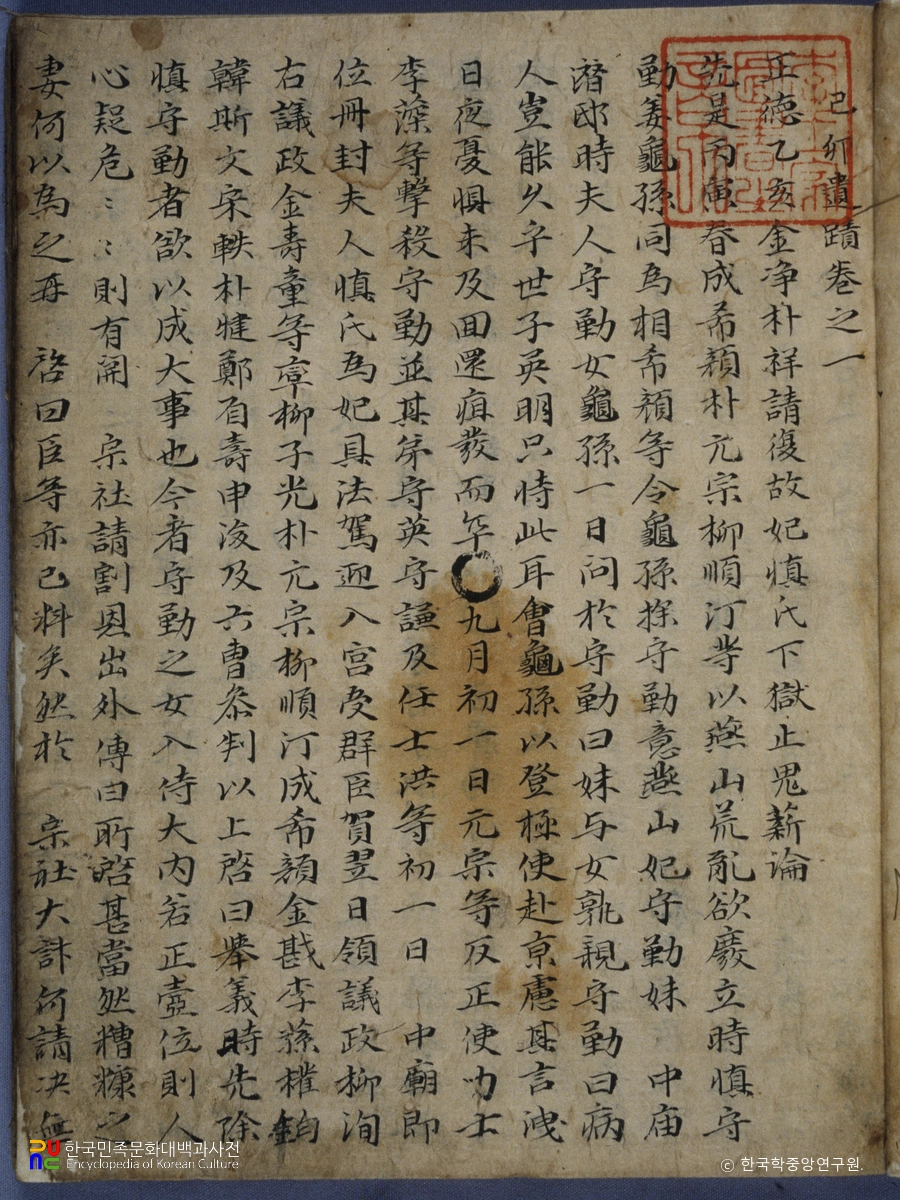 己卯遺蹟卷之一
正德乙亥金净朴祥請復故妃慎氏下獄止鬼薪論
先是丙寅春成希顔朴元宗柳順汀等以燕山荒亂欲廢立時慎守
勤姜龜孫同爲相希顔等令龜孫探守勤意燕山妃守勤妹 中庙
潛邸時夫人守勤女龜孫一日問於守勤曰妹与女孰親守勤曰病
人豈能久乎世子英明只恃此耳會龜孫以登極使赴京慮其言洩
日夜憂惧未及回還疽發而卒○九月初一日元宗等反正使力士
李藻等擊殺守勤並其弟守英守謙及任士洪等初一日 中廟即
位冊封夫人慎氏爲妃具法駕迎入宮受群臣賀翌日領議政柳洵
右議政金壽童等率柳子光朴元宗柳順汀成希顔金戡李蓀權鈞
韓斯文宋軼朴楗鄭眉壽申浚及六曹叅判以上啓曰擧義時先除
慎守勤者欲以成大事也今者守勤之女入侍大内若正壼位則人
心疑危〻〻則有關 宗社請割恩出外傳曰所啓甚當然糟糠之
妻何以爲之再 啓曰臣等亦已料矣然於 宗社大計何請决無
한국민족문화대백과사전
Encyclopedia of Korean Culture
© 한국학중앙연구원.